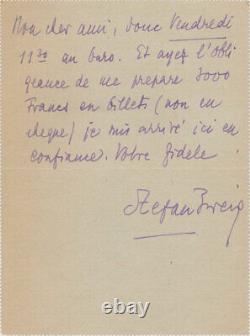 Mon cher ami, donc Vendredi
11 30 au buro. Et ayez l'obli
geance de me prepare 3000
Francs en billets (non en
cheque) je suis arrivé ici en
confiance. Votre fidele
Stefan Zweig
© ebay.com